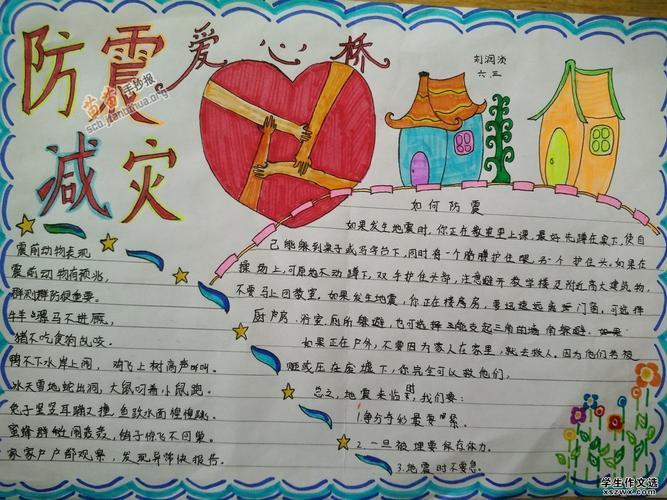 防震
减灾
爱心桥
刘润淡
六三
苗苗手抄报
scb.jianbihua.org
震前动物表现
震前动物有预兆，
群测群防很重要。
牛羊骡马不进厩，
猪不吃食狗乱咬。
鸭不下水岸上闹，鸡飞上树高声叫。
冰天雪地蛇出洞，大鼠叼着小鼠跑。
兔子竖耳蹦又撞，鱼跃水面惶惶跳。
蜜蜂群迁闹轰轰，鸽子惊飞不回巢。
家家户户都观察，发现异常快报告。
如何防震
如果发生地震时，你正在教室里上课，最好先蹲在桌下，使自
己能躲到桌子或写字台下，同时有一个胳膊护住眼另一个护住头。如果在
操场上，可原地不动蹲下，双手护住头部，注意避开教学楼及附近高大建筑物，
不要马上回教室。如果发生地震，你正在楼房房，要迅速远离门窗，可选择
厨房，浴室，厕所躲避，也可选择能支起三角的墙角躲避。
如果正在户外，不要因为家人在家里，就去救人。因为他们若被
砸或压在废墟下，你完全可以救他们，
总之，地震来临时，我们要：
1.争分夺秒最要紧。
2.一旦被埋要保存体力。
3.地震时不要急。
学生作文选
xszwx.cn